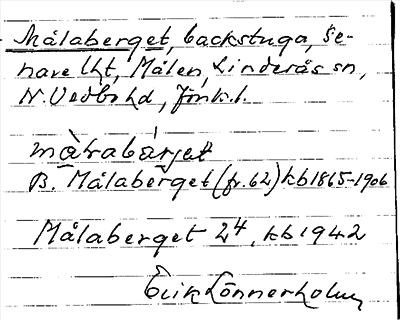 Målaberget, backstuga, se-
nare lht, Målen, Linderås sn,
N. Vedbo hd, Jönk. l.
màrabárjet
B. Målaberget (fr. 62) kb 1865-1906
Målaberget 2⁴, kb 1942
Erik Lönnerholm